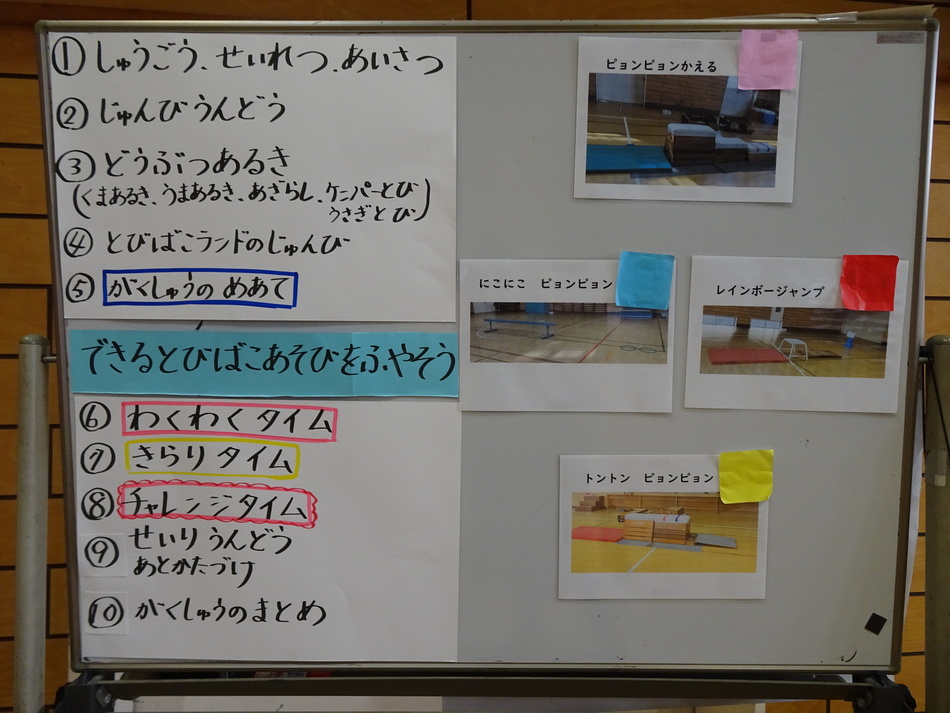 ① しゅうごう、せいれつ、あいさつ
② じゅんびうんどう
③ どうぶつあるき
(くまあるき、うまあるき、あざらし、ケンパーとび
うさぎとび)
④ とびばこランドのじゅんび
⑤ がくしゅうの めあて
できるとびばこあそびをふやそう
⑥ わくわくタイム
⑦ きらりタイム
⑧ チャレンジタイム
⑨ せいりうんどう
あとかたづけ
⑩ がくしゅうのまとめ
ピョンピョンかえる
にこにこ ピョンピョン
レインボージャンプ
トントン ピョンピョン